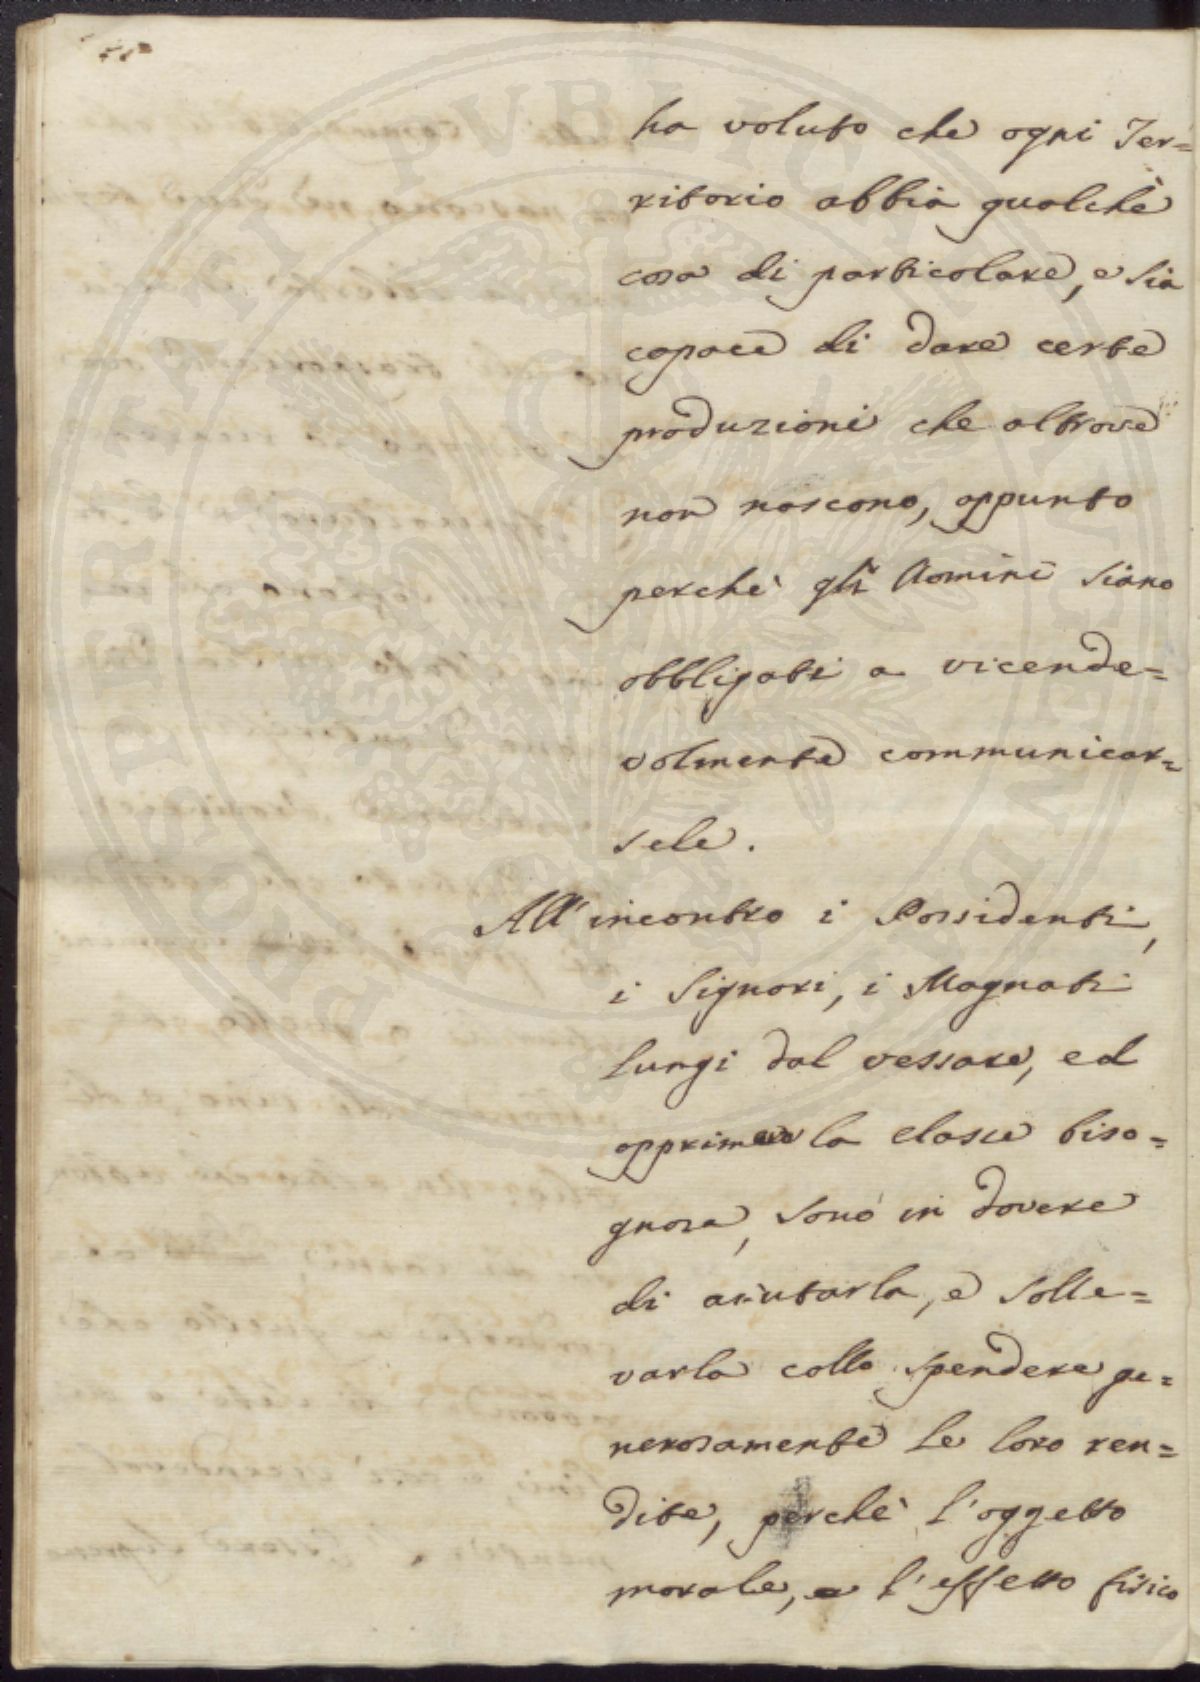 ha voluto che ogni Ter=
ritorio abbia qualche
cosa di particolare, e sia
capace di dare certe
produzioni che altrove
non nascono, appunto
perchè gli Uomini siano
obbligati a vicende=
volmente communicar=
sele.
All'incontro i Possidenti,
i Signori, i Magnati
lungi dal vessare, ed
opprimere la classe biso=
gnosa, sono in dovere
di aiutarla, e solle=
varla collo spendere ge=
nerosamente le loro ren=
dite, perchè l'oggetto
morale, e l'effetto fisico